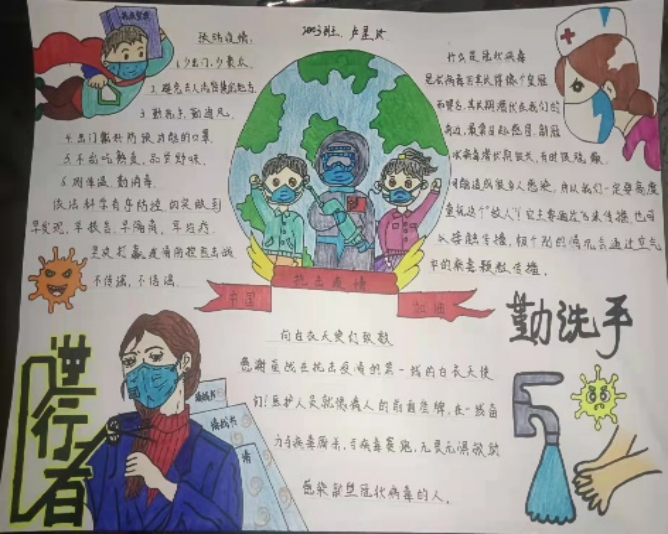 预防疫情:
1.少出门,少聚众
2.避免去人流密集的地方
3.勤洗手,勤通风。
4.出门戴好防护功能的口罩
野味。
6.测体温,勤消毒。
依法科学有序防控切实做到
早发现,早报告,早隔离,早治疗
坚决打赢疫情防控阻击战
不信谣,不传谣。
什么是冠状病毒
冠状病毒因其长得像个皇冠
而得名,其长期潜伏在我们的
身边,最常引起感冒,
状病毒潜伏期很长,有时很
可能造成很多人感染,所以我们一定要高度
重视这个"敌人"!它主要通过飞沫传播,也可
以接触传播,极个别的情况会通过空气
中的病毒颗粒传播。
抗击疫情
中国
加油
勤洗手
向白衣天使们致敬
感谢奋战在抗击疫情的第一线的白衣天使
们!医护人员就像病人的前面盾牌,在一线奋
力与病毒厮杀,与病毒赛跑,无畏无惧救助
感染新型冠状病毒的人。
逆行者
请战书
请战书
请